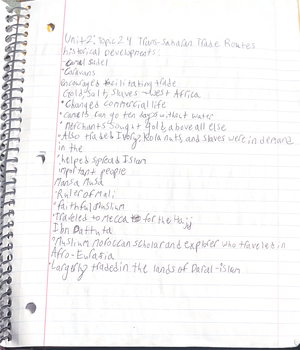 Unit 2: Topic 2.4 Trans-Saharan Trade Routes
historical developments:
-Camel Sadel
-Caravans
encouraged + facilitating trade
Gold, Salt, Slaves - West Africa
• Changed commercial life
• camels can go ten days without water
• Merchants sought gold above all else
• Also traded Ivory, Kola nuts, and slaves were in demand
in the
• helped spread Islam
important people
Mansa Musa
• Ruler of Mali
• faithful muslim
• Traveled to Mecca for the Hajj
Ibn Battuta
• Muslium Moroccan scholar and explorer who traveled in
Afro-Eurasia
• Largerly traded in the lands of Daral-islam